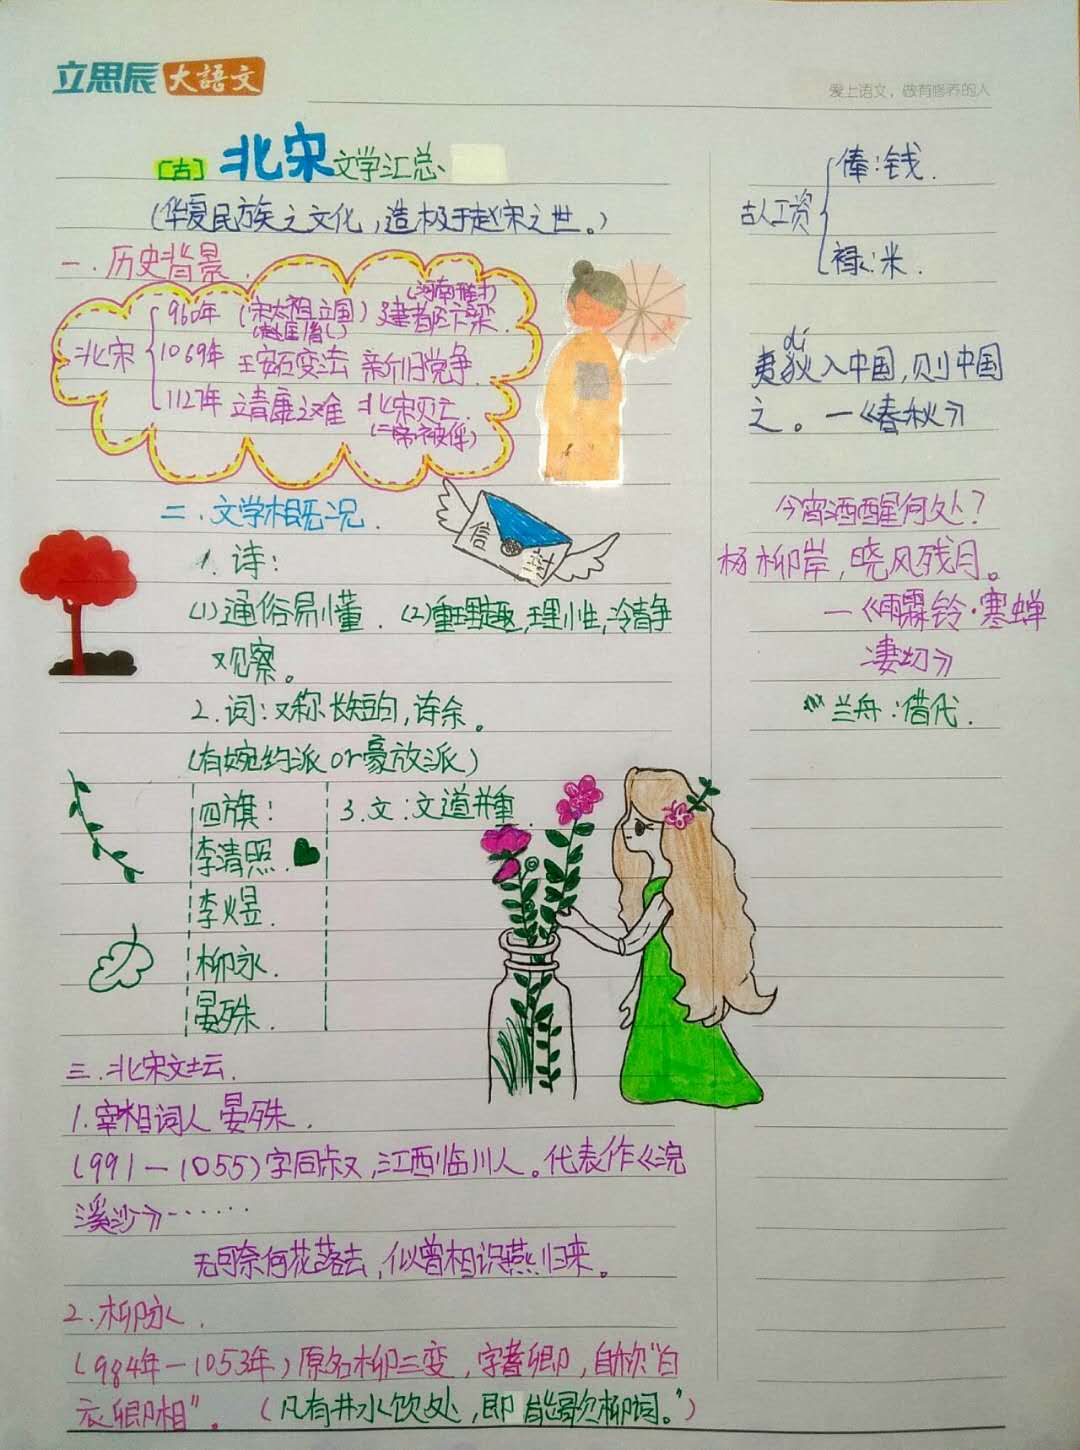 立思辰大語文
爱上语文，做有修养的人
[古] 北宋文学汇总
(华夏民族之文化，造极于赵宋之世。)
一.历史背景.
北宋
960年 (宋太祖立国) 建都汴梁.
(赵匡胤) (河南开封)
1069年 王安石变法 新旧党争.
1127年 靖康之难 北宋灭亡.
(二帝被俘)
二.文学概况.
信封
1.诗:
(1)通俗易懂. (2)重理趣,理性,冷静
观察。
2.词:又称长短句,诗余。
(有婉约派or豪放派)
四旗:
李清照.
李煜.
柳永.
晏殊.
3.文:文道并重.
三.北宋文坛.
1.宰相词人 晏殊.
(991—1055)字同叔,江西临川人。代表作《浣
溪沙》······
无可奈何花落去,似曾相识燕归来。
2.柳永.
(984年—1053年)原名柳三变,字耆卿,自称"白
衣卿相"。(凡有井水饮处,即能歌柳词。")
古人工资
俸:钱.
禄:米.
di
夷狄入中国,则中国
之。—《春秋》
今宵酒醒何处?
杨柳岸,晓风残月。
—《雨霖铃·寒蝉
凄切》
兰舟:借代.